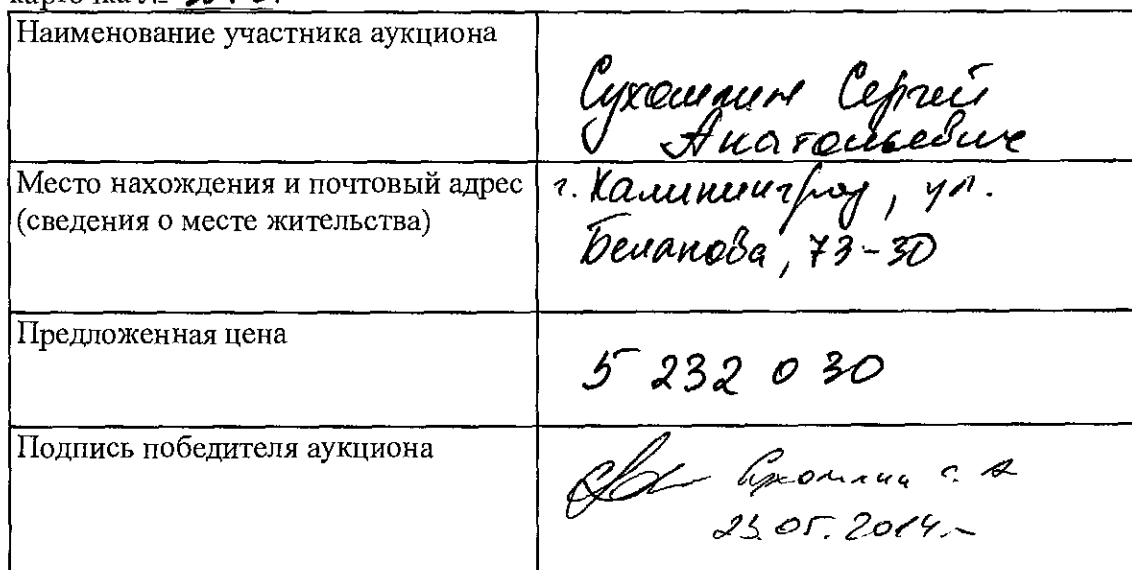 карточка №
Наименование участника аукциона
Сухомлин Сергей
Анатольевич
Место нахождения и почтовый адрес
(сведения о месте жительства)
г. Калининград, ул.
Беланова, 73-30
Предложенная цена
5 232 030
Подпись победителя аукциона
Сухомлин С. А
23.05.2014.